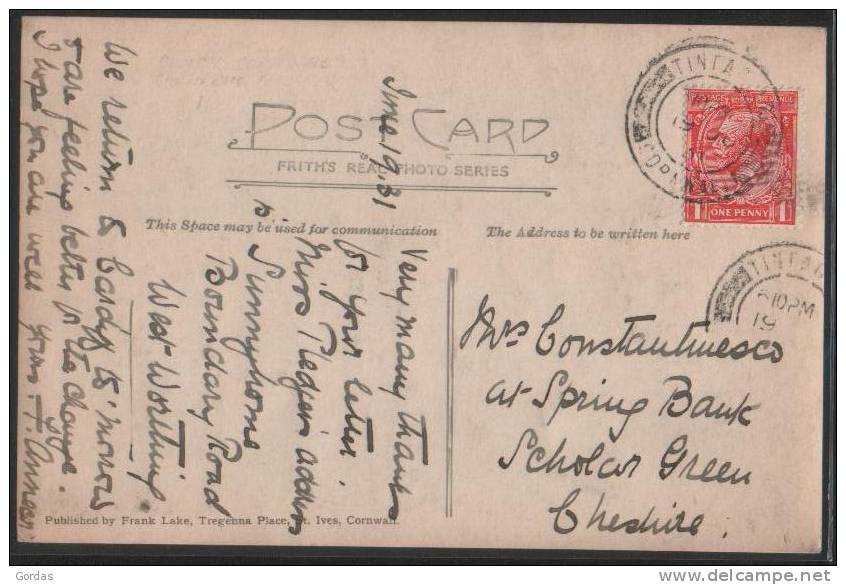 POST CARD
FRITH'S REAL PHOTO SERIES
This Space may be used for communication
The Address to be written here
TINTAG
ONE PENNY
1 1
TINTAG
10 PM
19
June 19. 31
Very many thanks
for your letter.
Miss Pledger's address
is
Sunnyhome
Boundary Road
West Worthing
We return to Cardiff to'morrow
& are feeling better for the change.
I hope you are well yours
Mrs Constantinesco
at Spring Bank
Scholar Green
Cheshire.
Published by Frank Lake, Tregenna Place, St. Ives, Cornwall.
Gordas
delcampe.net